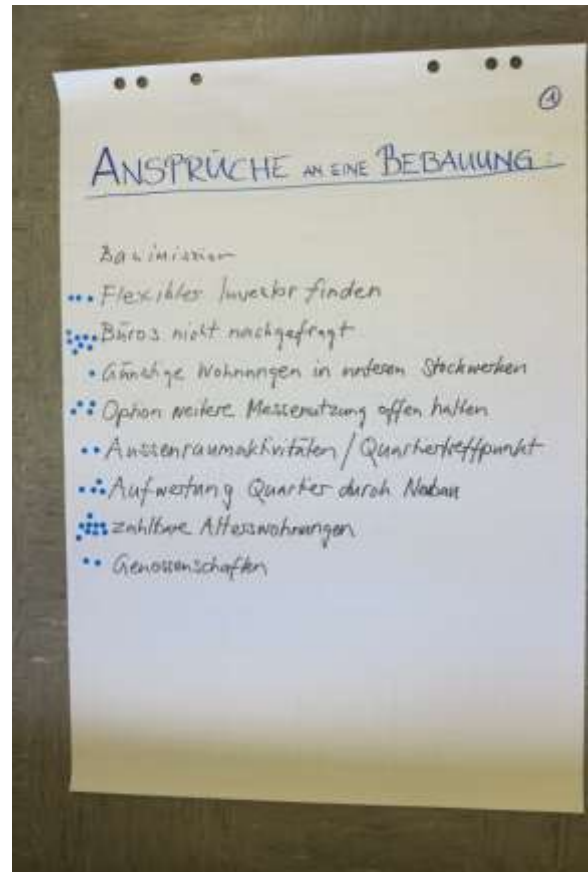 1
ANSPRÜCHE AN EINE BEBAUUNG:
Bauimission
Flexibler Investor finden
Büros nicht nachgefragt
Günstige Wohnungen in unteren Stockwerken
Option weitere Messenutzung offen halten
Aussenraumaktivitäten / Quartiertreffpunkt
Aufwertung Quartier durch Neubau
zahlbare Alterswohnungen
Genossenschaften